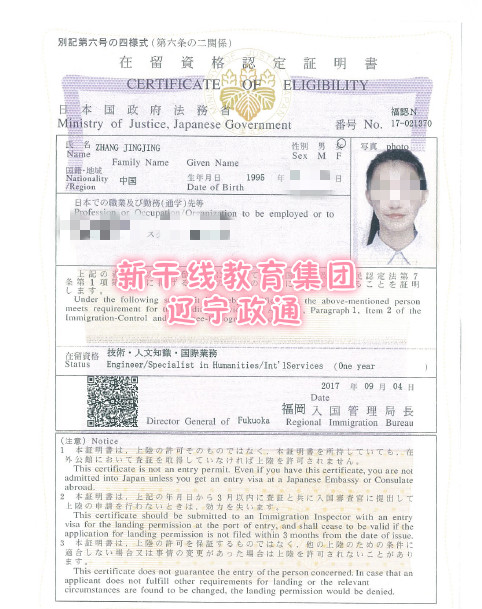 別記第六号の四様式(第六条の二関係)
在留資格認定証明書
CERTIFICATE OF ELIGIBILITY
日本国政府法務省
Ministry of Justice, Japanese Government
福認N
番号 No. 17-021370
氏名 ZHANG JINGJING
Name Family Name Given Name
性別 男 女
Sex M F
写真 photo
国籍・地域 中国
Nationality/Region
生年月日 1995 年 月 日
Date of Birth
日本での職業及び勤務(通学)先等
Profession or Occupation/Organization to be employed or to
新干线教育集团
辽宁政通
上記の
民認定法第7
条第1項
ことを証明
します。
Under the following the above-mentioned person
meets requirement for Paragraph 1, Item 2 of the
Immigration-Control and
在留資格 技術・人文知識・国際業務
Status Engineer/Specialist in Humanities/Int'lServices (One year )
2017 年 09 月 04 日
Date
福岡 入国管理局長
Director General of Fukuoka Regional Immigration Bureau
(注意) Notice
1 本証明書は、上陸の許可そのものではなく、本証明書を所持していても、在
外公館において査証を取得していなければ上陸を許可されません。
This certificate is not an entry permit. Even if you have this certificate, you are not
admitted into Japan unless you get an entry visa at a Japanese Embassy or Consulate
abroad.
2 本証明書は、上記の年月日から3月以内に査証と共に入国審査官に提出して
上陸の申請を行わないときは、効力を失います。
This certificate should be submitted to an Immigration Inspector with an entry
visa for the landing permission at the port of entry, and shall cease to be valid if the
application for landing permission is not filed within 3 months from the date of issue.
3 本証明書は、上陸の許可を保証するものではなく、他の上陸のための条件に
適合しない場合又は事情の変更があった場合は上陸を許可されないことがあり
ます。
This certificate does not guarantee the entry of the person concerned. In case that an
applicant does not fulfill other requirements for landing or the relevant
circumstances are found to be changed, the landing permission would be denied.